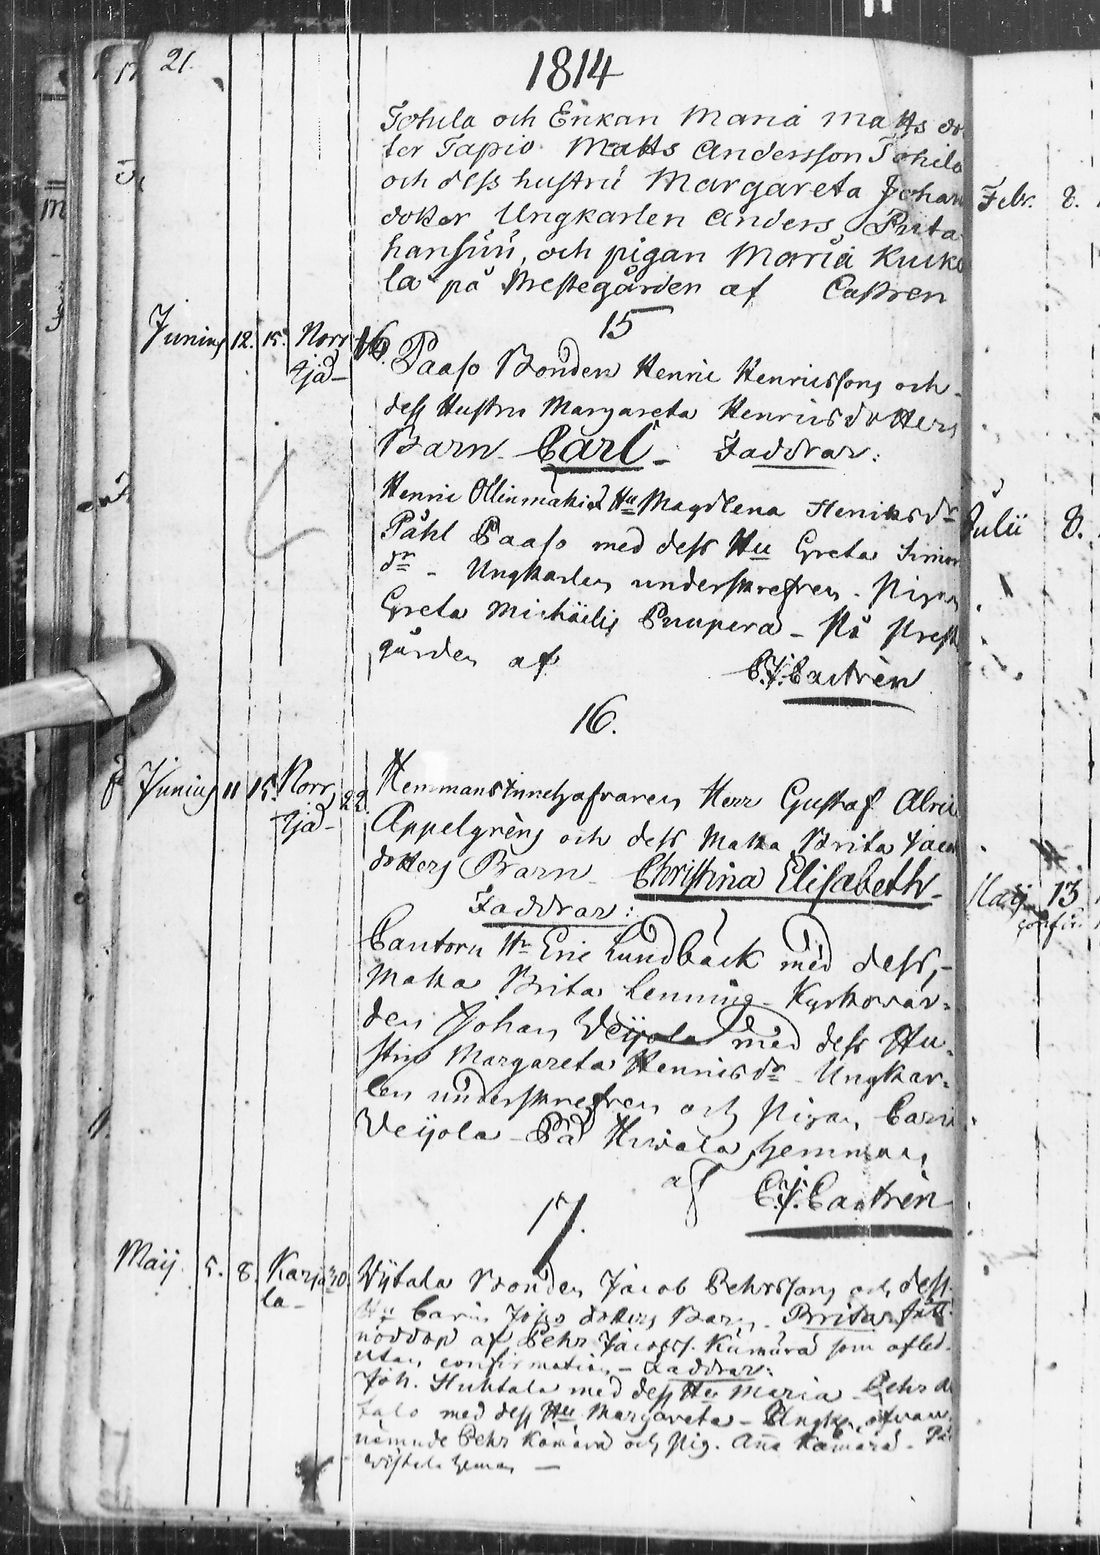 21.
1814
Johila och Enkan Maria Matts do
ter Tapio. Matts Andersson Johila
och dess hustru Margareta Johan
dotter, Ungkarlen Anders Pirita
hansuu, och pigan Maria Kuik
la på Prestegården af Castren
15
Junius 12. 15. Norr 16. Paaso Bonden Henric Henricssons och
sjä- dess Hustru Margareta Henricsdotters
Barn. Carl. Faddrar:
Henric Ollinmäki Hu Magdlena Henricsdr
Påhl Paaso med dess Hu Greta Simons
dr - Ungkarlen underskrefven. Pigan
Greta Michäels Puupera - På Prest
gården af
C.J. Castrèn
16.
Junius 11 15. Norr 22. Hemmansinnehafvaren Herr Gustaf Alric
sjä- Appelgrèns och dess Maka Brita Jacobs
dotters Barn. Christina Elisabeth.
Faddrar:
Cantorn Hr Eric Lundbäck med dess,
Maka Brita Lenning. Kyrkovär-
den Johan Weijola med dess Hu-
stru Margareta Henricsdr. Ungkar-
len underskrefven och Pigan Carin
Veijola. På Hemman
af C.J. Castrèn
17.
Maij 5. 8. Karja 30. Wijtala Bonden Jacob Pehrssons och dess
la- Hu Carin dotters Barn. Brita
nöddöp af Pehr Jacobss. Kämärä som afled.
utan confirmation - Faddrar:
Joh. Huhtala med dess Hu Maria. Pehr
talo med dess Hu Margareta - Ungk. ofvan
nämnde Pehr Kämärä och Pig. Anna Kämärä. På
Wijtala heman -
Febr. 8.
Julii 8.
Maij 13